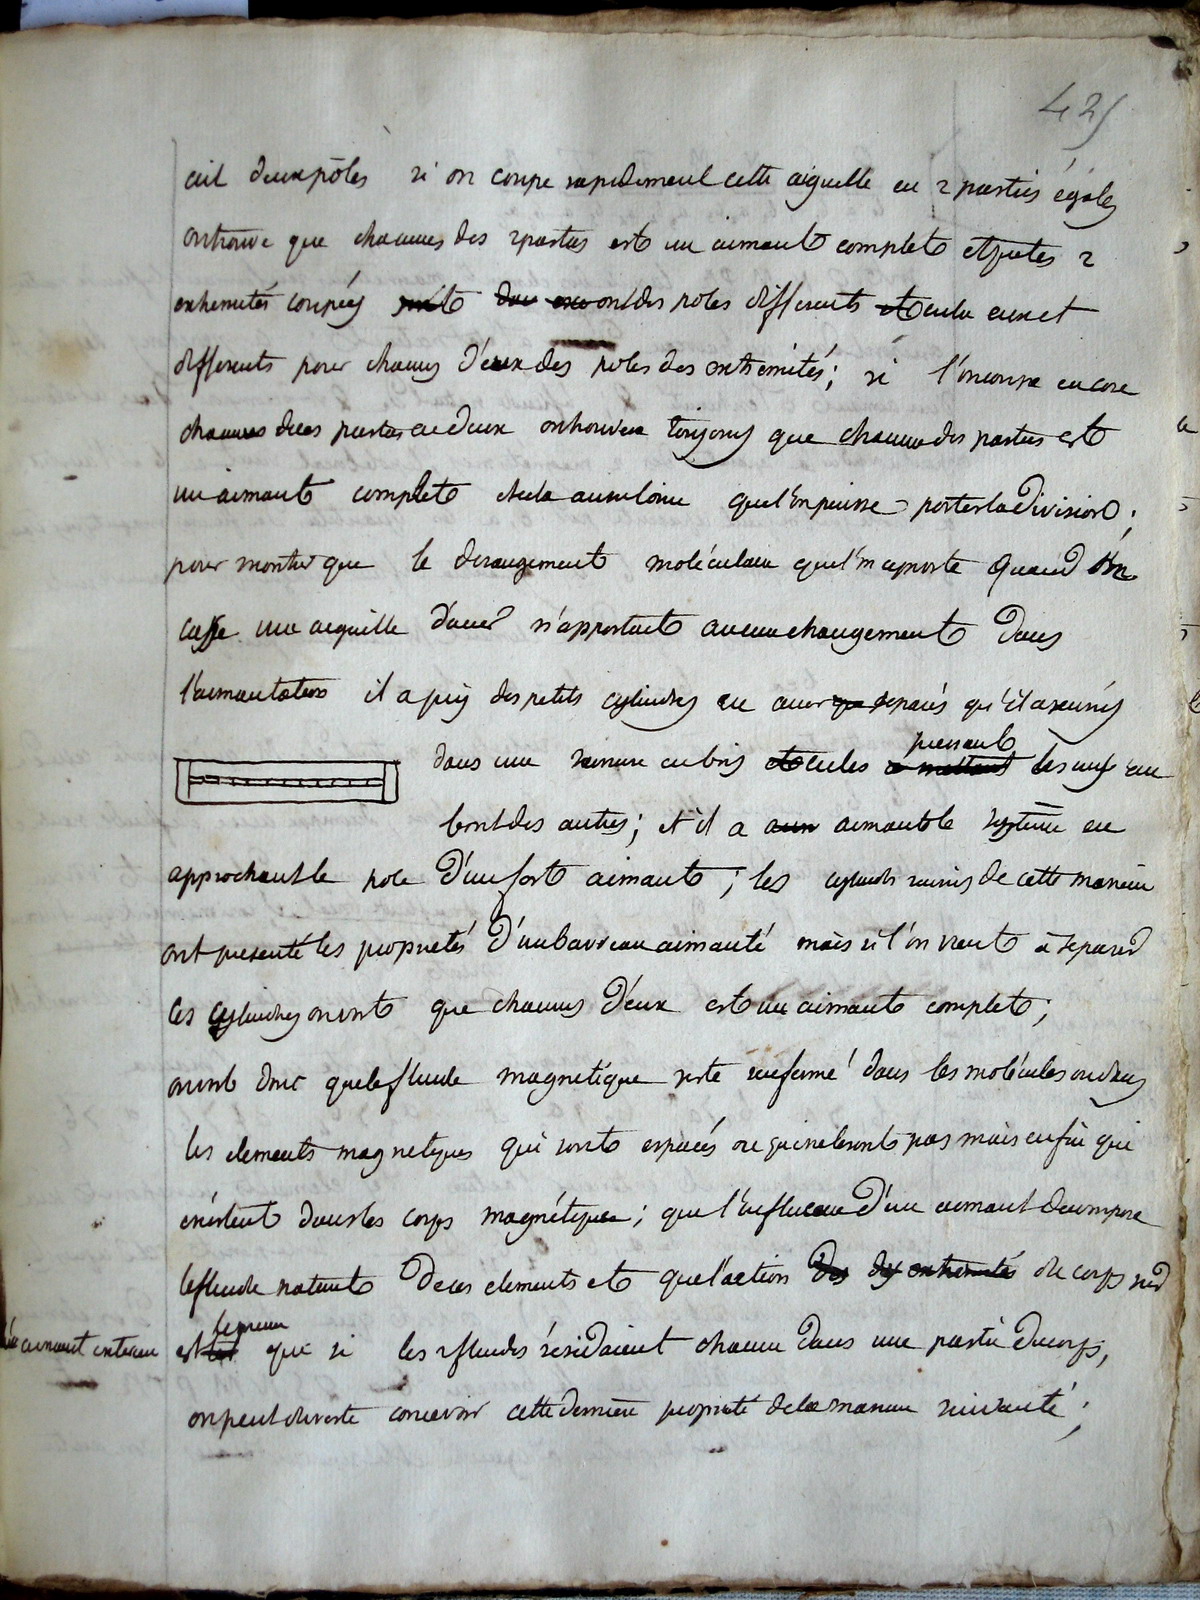 425
ait deux pôles si on coupe rapidement cette aiguille en 2 parties égales
on trouve que chacunes des 2 partes est un aimant complet et que les 2
extremités coupées ont des poles différents et cela
differents pour chacun d'eux des poles des extrémités; si l'on coupe encore
chacunes de ces partes en deux on trouvera toujours que chacune des parties est
un aimant complet et cela aussi loin que l'on puisse porter la division;
pour montrer que le derangement moléculaire que l'on apporte quand l'on
casse une aiguille d'acier n'apportait aucun changement dans
l'aimantation il a pris des petits cylindres en acier separés qu'il a reunis
dans une rainure en bois et en les
pressant
les uns au
bout des autres; et il a aimanté le système en
approchant le pole d'un fort aimant; les cylindres reunis de cette maniere
ont presenté les propriétés d'un barreau aimanté mais si l'on vient à separer
ces cylindres on voit que chacuns d'eux est un aimant complet;
on voit donc que le fluide magnétique reste renfermé dans les molécules ou dans
les elements magnetiques qui sont espacés ou qui ne le sont pas mais enfin qui
existent dans les corps magnétiques; que l'influence d'un aimant decompose
le fluide naturel de ces elements et que l'action des extremités de corps
aimant exterieur
la meme
est que si les 2 fluides résidaient chacun dans une partie du corps,
on peut du reste concevoir cette derniere propriété de la maniere suivante;